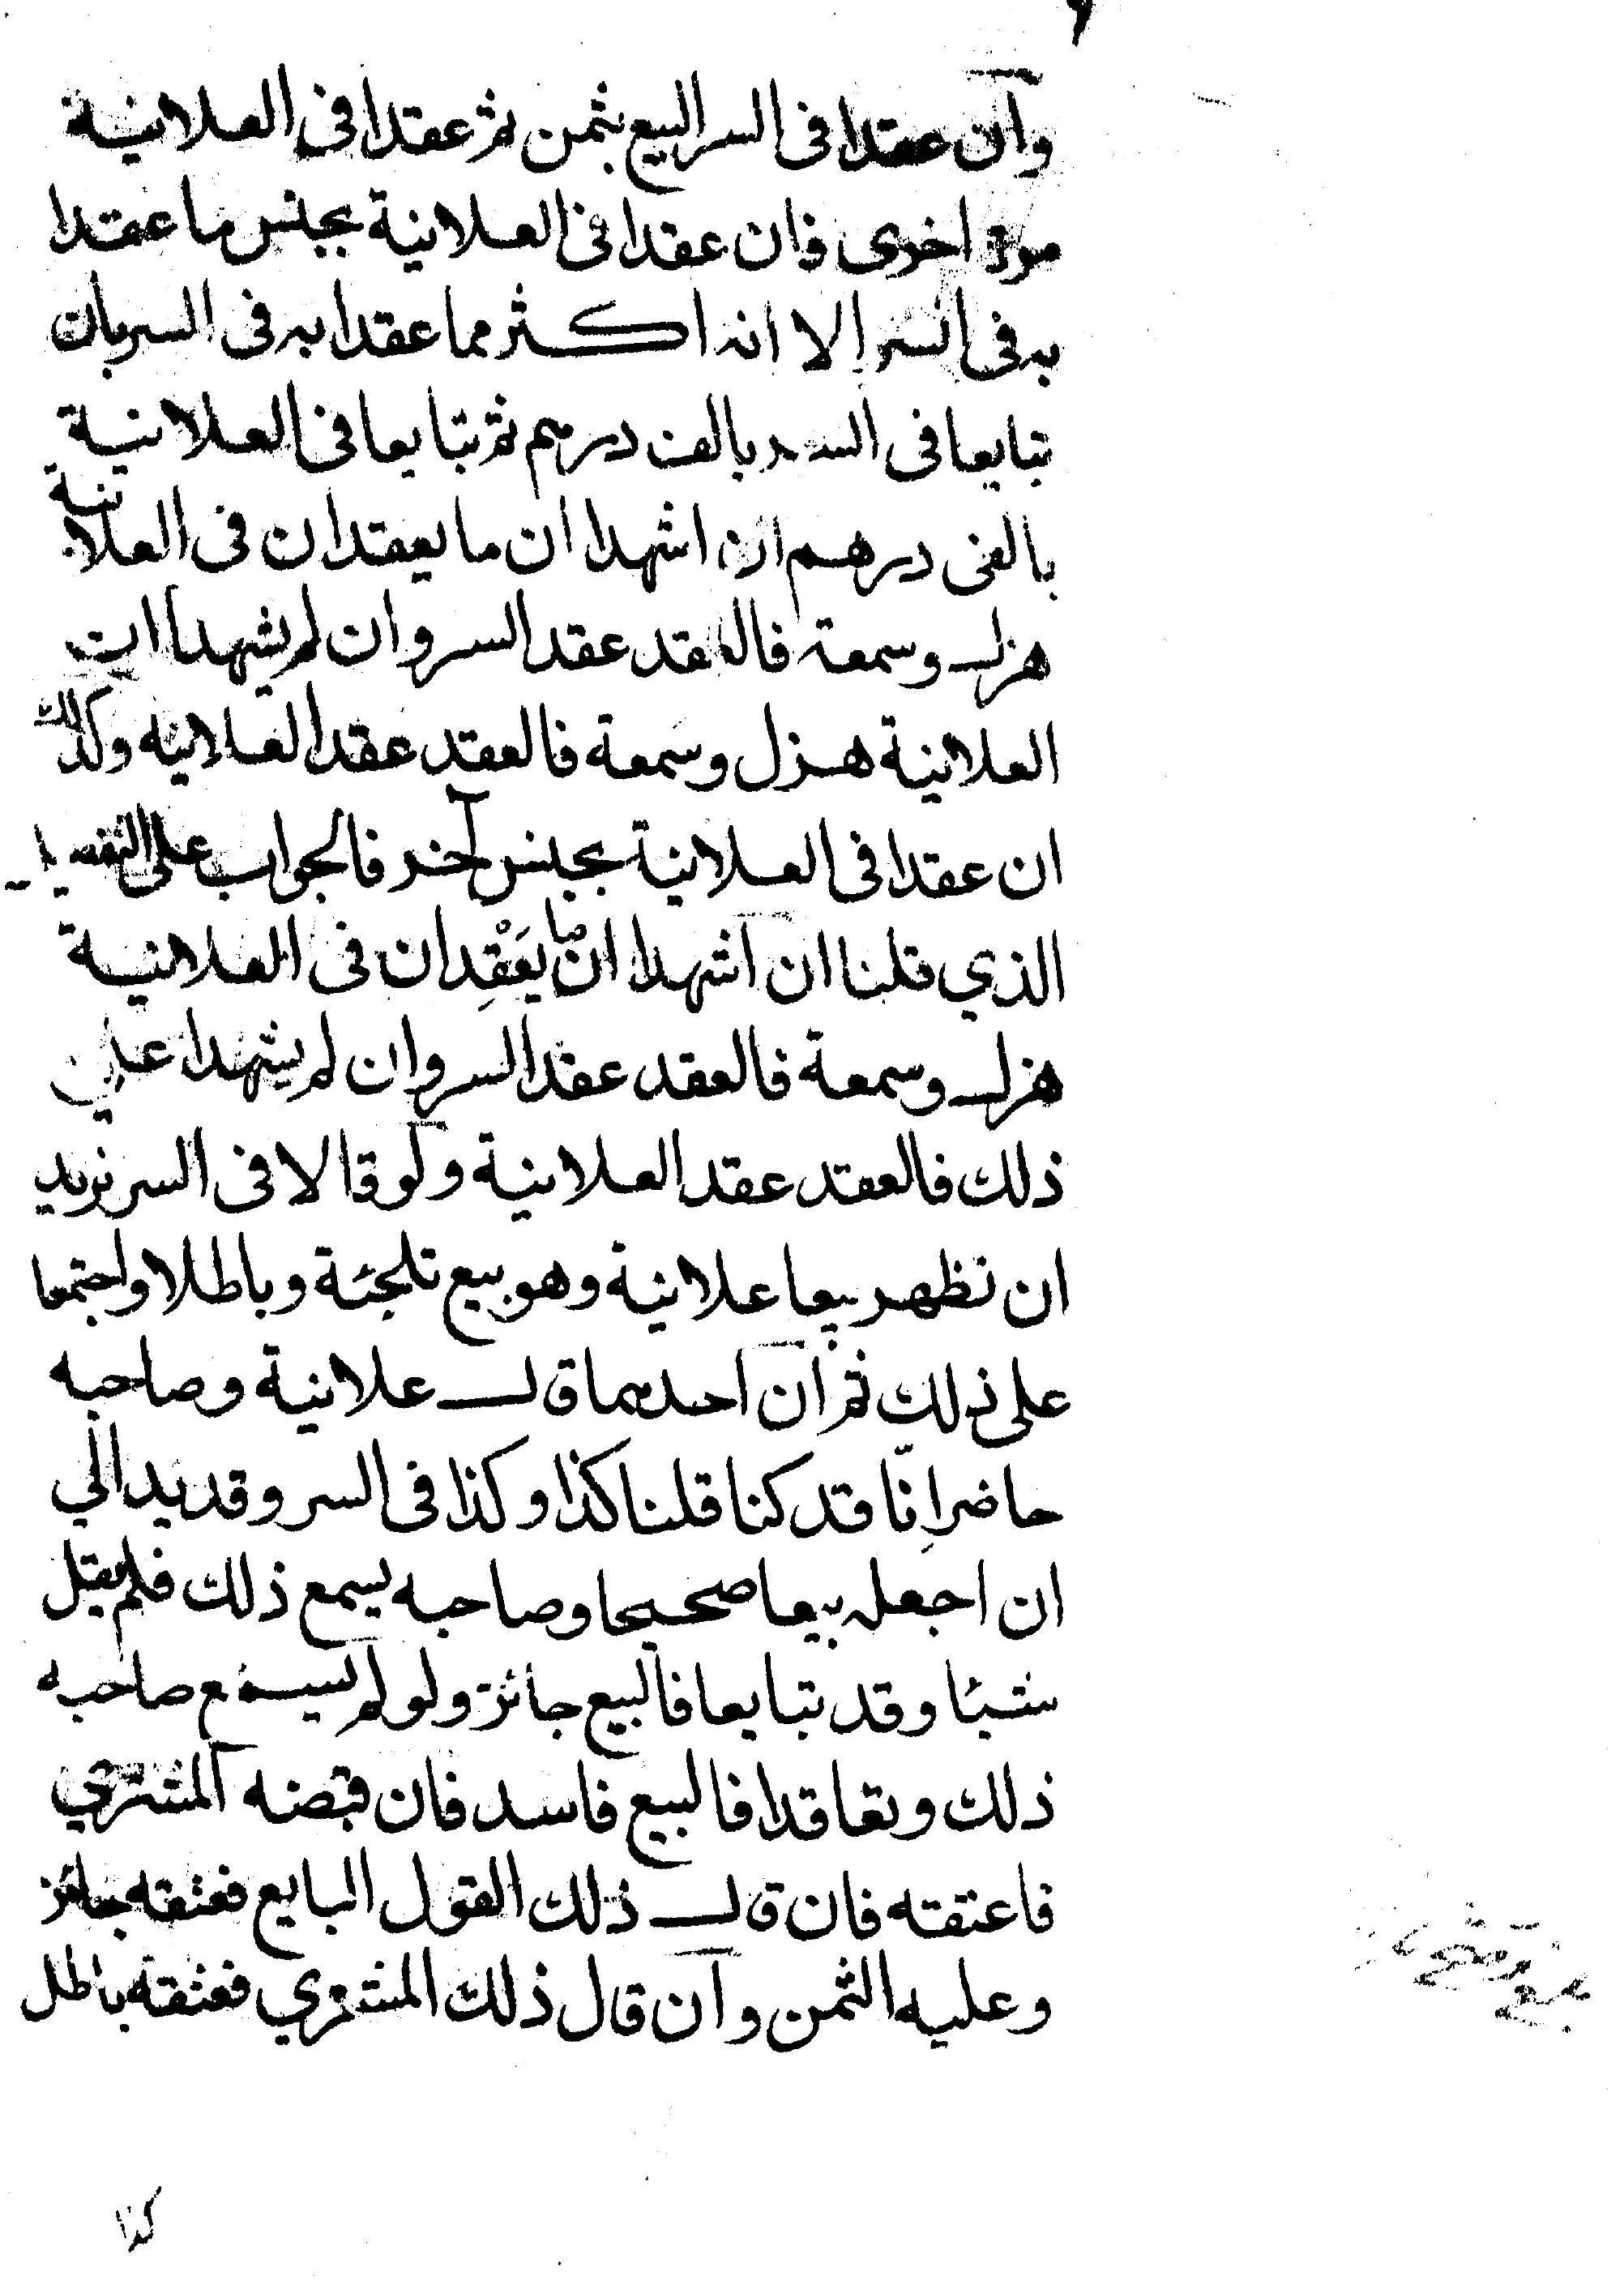 وان عقدا فى السر البيع بثمن ثم عقدا فى العلانية
مرة اخرى فان عقدا فى العلانية بجنس ما عقدا
به فى السر الا انه اكثر مما عقدا به فى السر بان
تبايعا فى السر بالف درهم ثم تبايعا فى العلانية
بالفى درهم ان اشهدا ان ما يعقدان فى العلانية
هزل وسمعة فالعقد عقد السر وان لم يشهدا ان
العلانية هزل وسمعة فالعقد عقد العلانية وكذلك
ان عقدا فى العلانية بجنس آخر فالجواب على التفصيل
الذي قلنا ان اشهدا ان ما يعقدان فى العلانية
هزل وسمعة فالعقد عقد السر وان لم يشهدا على
ذلك فالعقد عقد العلانية ولو قالا فى السر نريد
ان نظهر بيعا علانية وهو بيع تلجئة وباطلا واجتمعا
على ذلك ثم ان احدهما قال علانية وصاحبه
حاضر انّا قد كنا قلنا كذا وكذا فى السر وقد بدا لي
ان اجعله بيعا صحيحا وصاحبه يسمع ذلك فلم يقل
شيئا وقد تبايعا فالبيع جائز ولو لم يسمع صاحبه
ذلك وتعاقدا فالبيع فاسد فان قبضه المشتري
فاعتقه فان قال ذلك القول البايع فعتقه جائز
وعليه الثمن وان قال ذلك المشتري فعتقه باطل
كذا